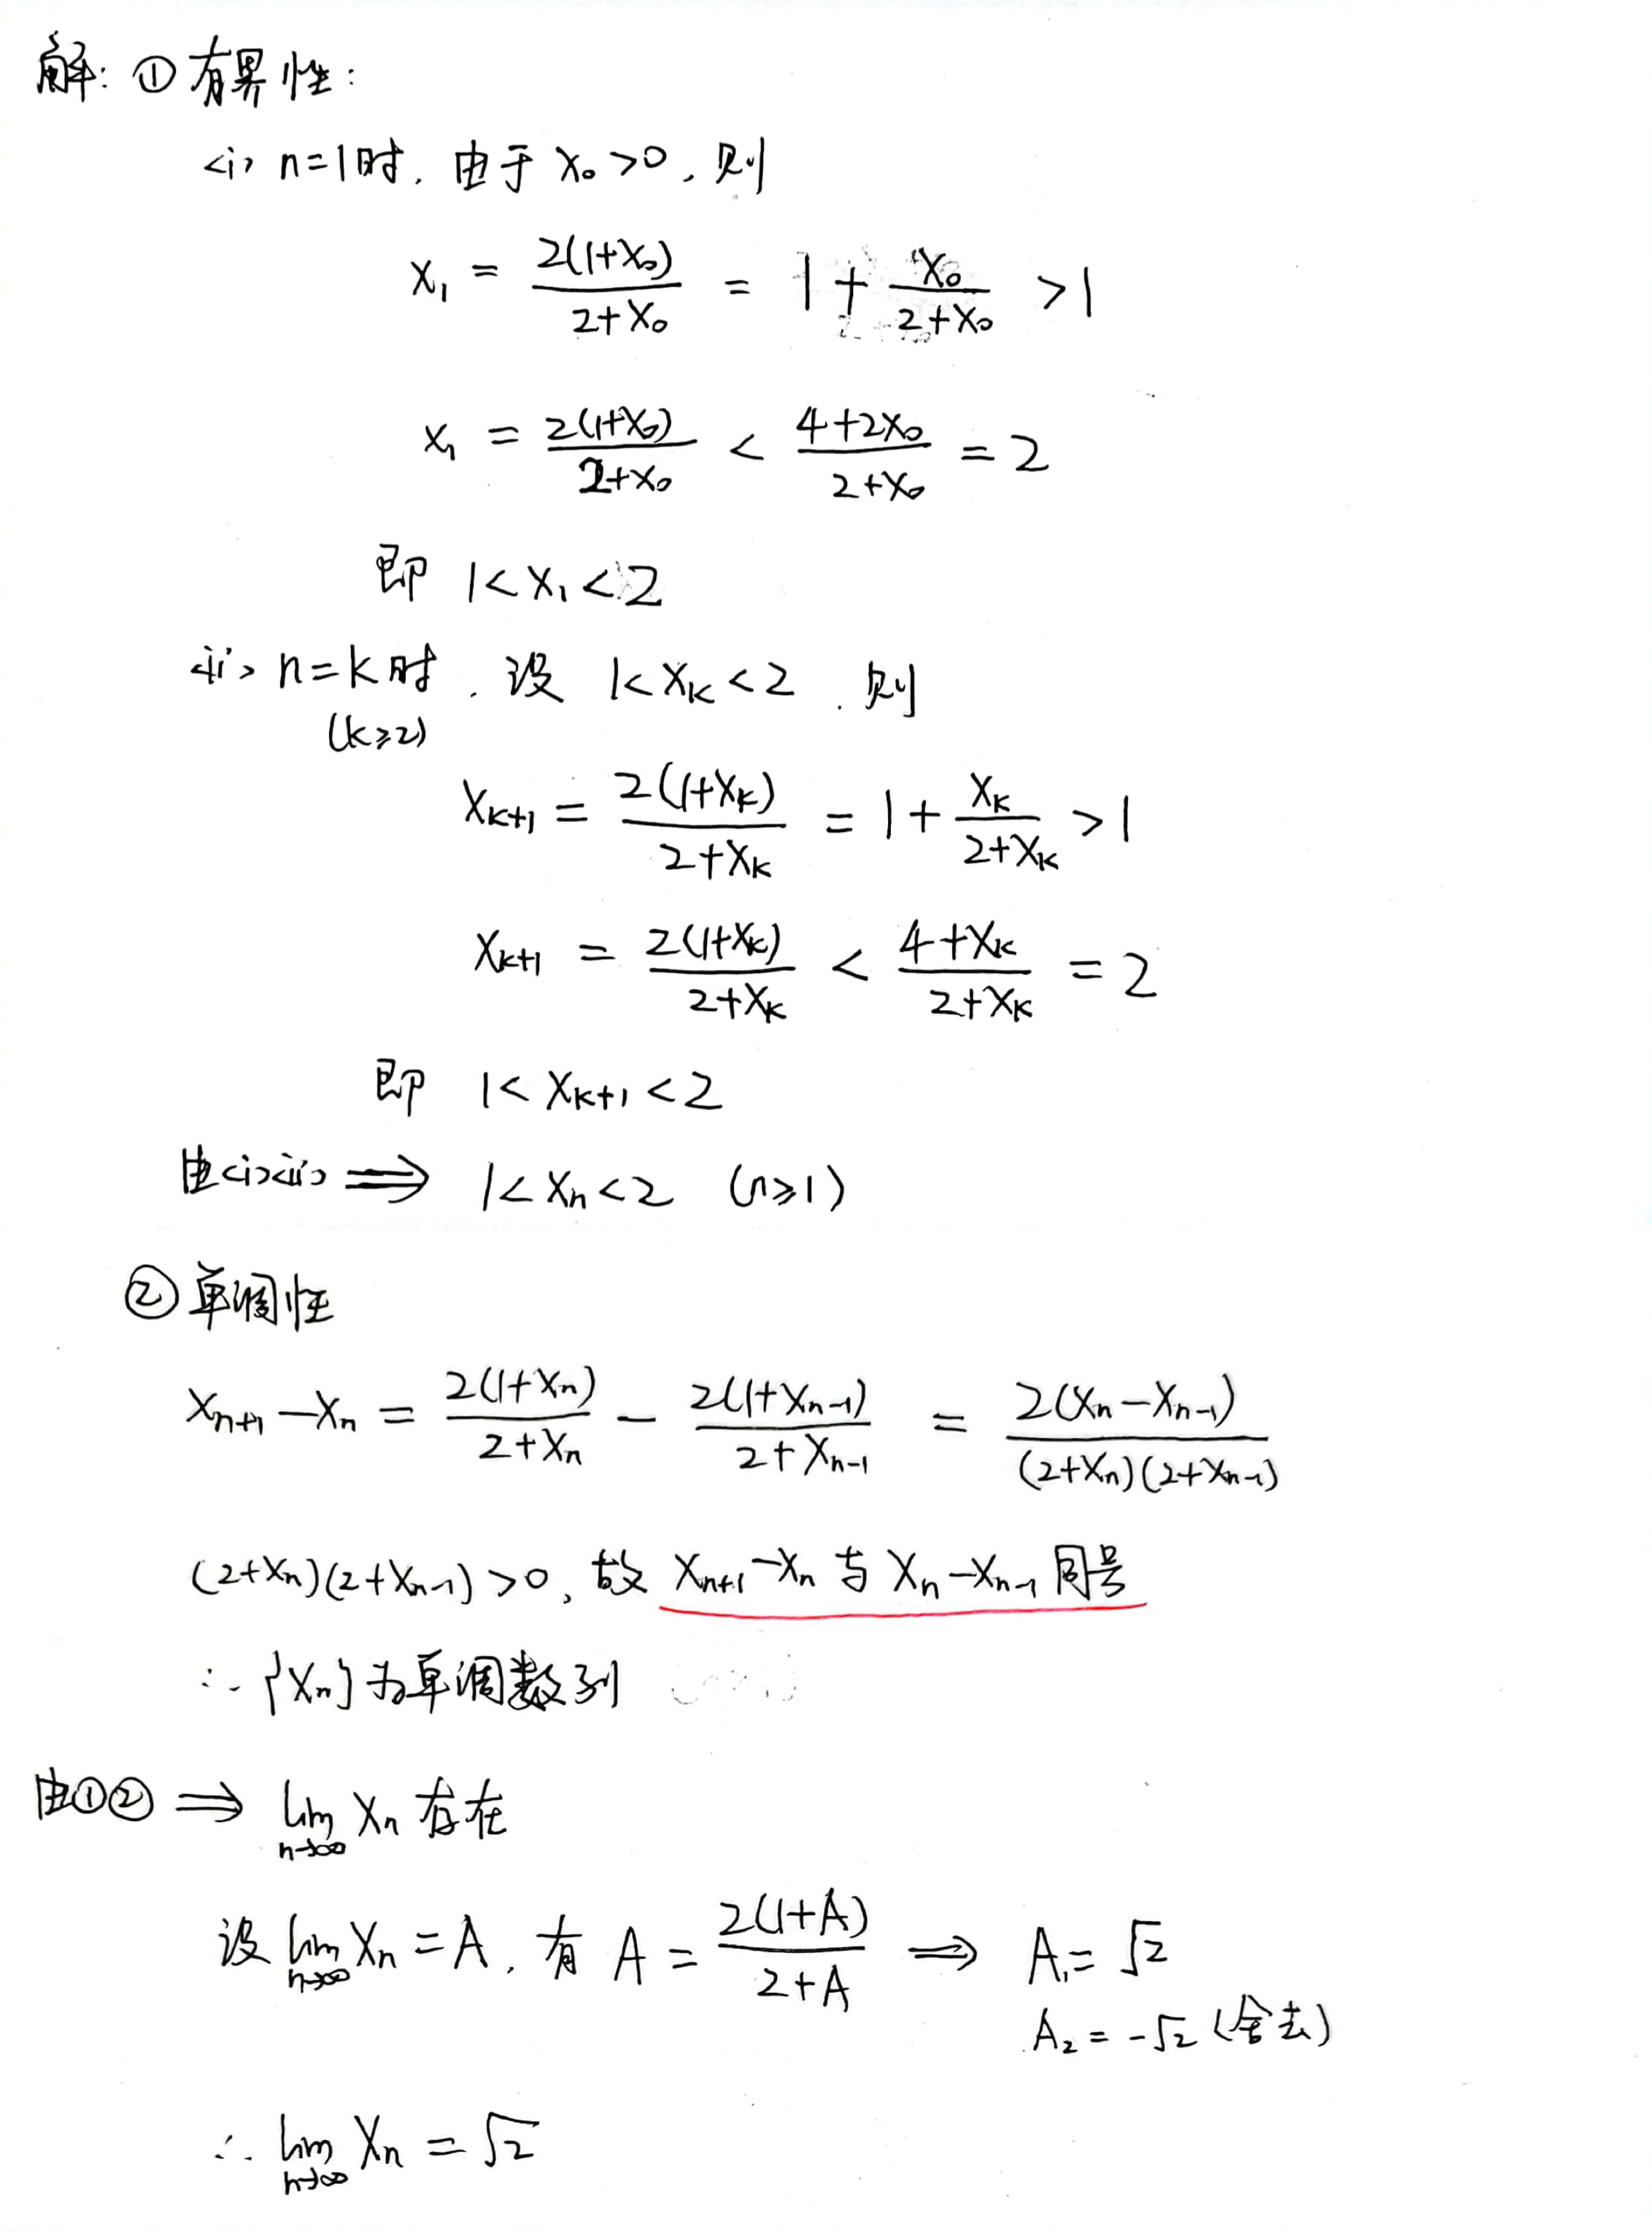 解: ① 有界性:
<i> n=1时. 由于 x₀>0, 则
x₁ = 2(1+x₀)/(2+x₀) = 1 + x₀/(2+x₀) >1
x₁ = 2(1+x₀)/(2+x₀) < (4+2x₀)/(2+x₀) = 2
即 1<x₁<2
<ii> n=k时. 设 1<xₖ<2. 则
(k≥2)
xₖ₊₁ = 2(1+xₖ)/(2+xₖ) = 1 + xₖ/(2+xₖ) >1
xₖ₊₁ = 2(1+xₖ)/(2+xₖ) < (4+xₖ)/(2+xₖ) = 2
即 1<xₖ₊₁<2
由<i><ii> ⟹ 1<xₙ<2 (n≥1)
② 单调性
xₙ₊₁-xₙ = 2(1+xₙ)/(2+xₙ) - 2(1+xₙ₋₁)/(2+xₙ₋₁) = 2(xₙ-xₙ₋₁)/((2+xₙ)(2+xₙ₋₁))
(2+xₙ)(2+xₙ₋₁)>0, 故 xₙ₊₁-xₙ 与 xₙ-xₙ₋₁ 同号
∴ {xₙ}为单调数列
由①② ⟹ lim_{n→∞} xₙ 存在
设 lim_{n→∞} xₙ = A. 有 A = 2(1+A)/(2+A) ⟹ A₁=√2
A₂=-√2 (舍去)
∴ lim_{n→∞} xₙ = √2